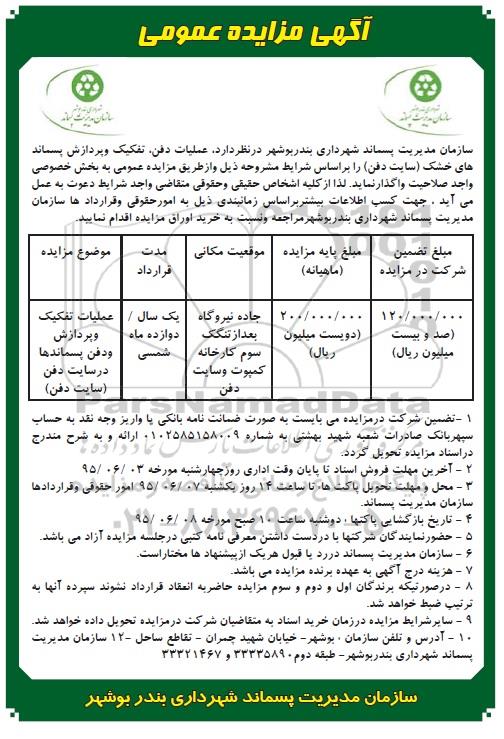 آگهی مزایده عمومی
شهرداری بندر بوشهر
سازمان مدیریت پسماند
شهرداری بندر بوشهر
سازمان مدیریت پسماند
سازمان مدیریت پسماند شهرداری بندربوشهر درنظردارد، عملیات دفن، تفکیک وپردازش پسماند
های خشک (سایت دفن) را براساس شرایط مشروحه ذیل وازطریق مزایده عمومی به بخش خصوصی
واجد صلاحیت واگذارنماید. لذا ازکلیه اشخاص حقیقی وحقوقی متقاضی واجد شرایط دعوت به عمل
می آید ، جهت کسب اطلاعات بیشتربراساس زمانبندی ذیل به امورحقوقی وقرارداد ها سازمان
مدیریت پسماند شهرداری بندربوشهرمراجعه ونسبت به خرید اوراق مزایده اقدام نمایید.
موضوع مزایده
مدت قرارداد
موقعیت مکانی
مبلغ پایه مزایده (ماهیانه)
مبلغ تضمین شرکت در مزایده
عملیات تفکیک وپردازش ودفن پسماندها درسایت دفن (سایت دفن)
یک سال / دوازده ماه شمسی
جاده نیروگاه بعدازتنگک سوم کارخانه کمپوت وسایت دفن
۲۰۰/۰۰۰/۰۰۰ (دویست میلیون ریال)
۱۲۰/۰۰۰/۰۰۰ (صد و بیست میلیون ریال)
۱ -تضمین شرکت درمزایده می بایست به صورت ضمانت نامه بانکی یا واریز وجه نقد به حساب
سپهربانک صادرات شعبه شهید بهشتی به شماره ۰۱۰۲۵۸۵۱۵۸۰۰۹ ارائه و به شرح مندرج
دراسناد مزایده تحویل گردد.
۲ - آخرین مهلت فروش اسناد تا پایان وقت اداری روزچهارشنبه مورخه ۰۳ /۰۶ /۹۵
۳ - محل و مهلت تحویل پاکت ها، تا ساعت ۱۴ روز یکشنبه ۰۷/ ۰۶/ ۹۵ امور حقوقی وقراردادها
سازمان مدیریت پسماند.
۴ - تاریخ بازگشایی پاکتها ، دوشنبه ساعت ۱۰ صبح مورخه ۰۸ /۰۶ /۹۵
۵ - حضورنمایندگان شرکتها با دردست داشتن معرفی نامه کتبی درجلسه مزایده آزاد می باشد.
۶ - سازمان مدیریت پسماند دررد یا قبول هریک ازپیشنهاد ها مختاراست.
۷ - هزینه درج آگهی به عهده برنده مزایده می باشد.
۸ - درصورتیکه برندگان اول و دوم و سوم مزایده حاضربه انعقاد قرارداد نشوند سپرده آنها به
ترتیب ضبط خواهد شد.
۹ - سایرشرایط مزایده درزمان خرید اسناد به متقاضیان شرکت درمزایده تحویل داده خواهد شد.
۱۰ - آدرس و تلفن سازمان ، بوشهر- خیابان شهید چمران - تقاطع ساحل -۱۲ سازمان مدیریت
پسماند شهرداری بندربوشهر- طبقه دوم۳۳۳۳۵۸۹۰ و ۳۳۳۲۱۴۶۷
سازمان مدیریت پسماند شهرداری بندر بوشهر
ParsNamadData